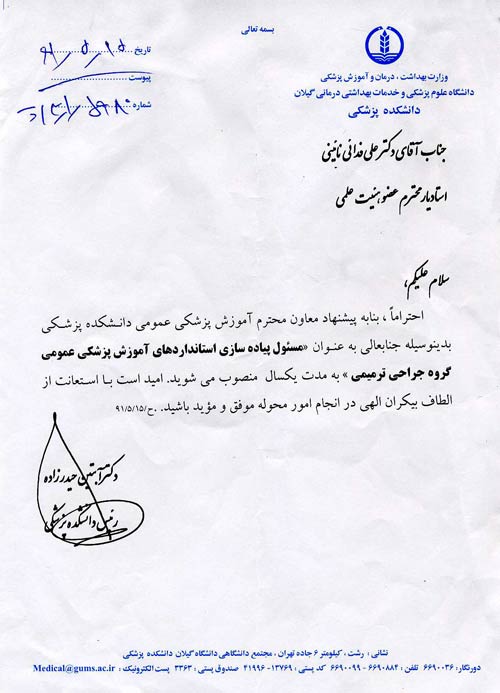 بسمه تعالی
وزارت بهداشت ، درمان و آموزش پزشکی
دانشگاه علوم پزشکی و خدمات بهداشتی درمانی گیلان
دانشکده پزشکی
تاریخ ۹۱/۵/۱۵
پیوست
شماره
جناب آقای دکتر علی فدائی نائینی
استادیار محترم عضو هیئت علمی
سلام علیکم،
احتراماً ، بنابه پیشنهاد معاون محترم آموزش پزشکی عمومی دانشکده پزشکی
بدینوسیله جنابعالی به عنوان «مسئول پیاده سازی استانداردهای آموزش پزشکی عمومی
گروه جراحی ترمیمی » به مدت یکسال منصوب می شوید. امید است با استعانت از
الطاف بیکران الهی در انجام امور محوله موفق و مؤید باشید. .ح/۹۱/۵/۱۵
دکتر آبتین حیدرزاده
رئیس دانشکده پزشکی
نشانی : رشت ، کیلومتر ۶ جاده تهران ، مجتمع دانشگاهی دانشگاه گیلان دانشکده پزشکی
دورنگار: ۶۶۹۰۰۳۶ تلفن : ۶۶۹۰۸۸۴ - ۶۶۹۰۰۹۹ کد پستی : ۱۳۷۶۹- ۴۱۹۹۶ صندوق پستی : ۳۳۶۳ پست الکترونیک : Medical@gums.ac.ir